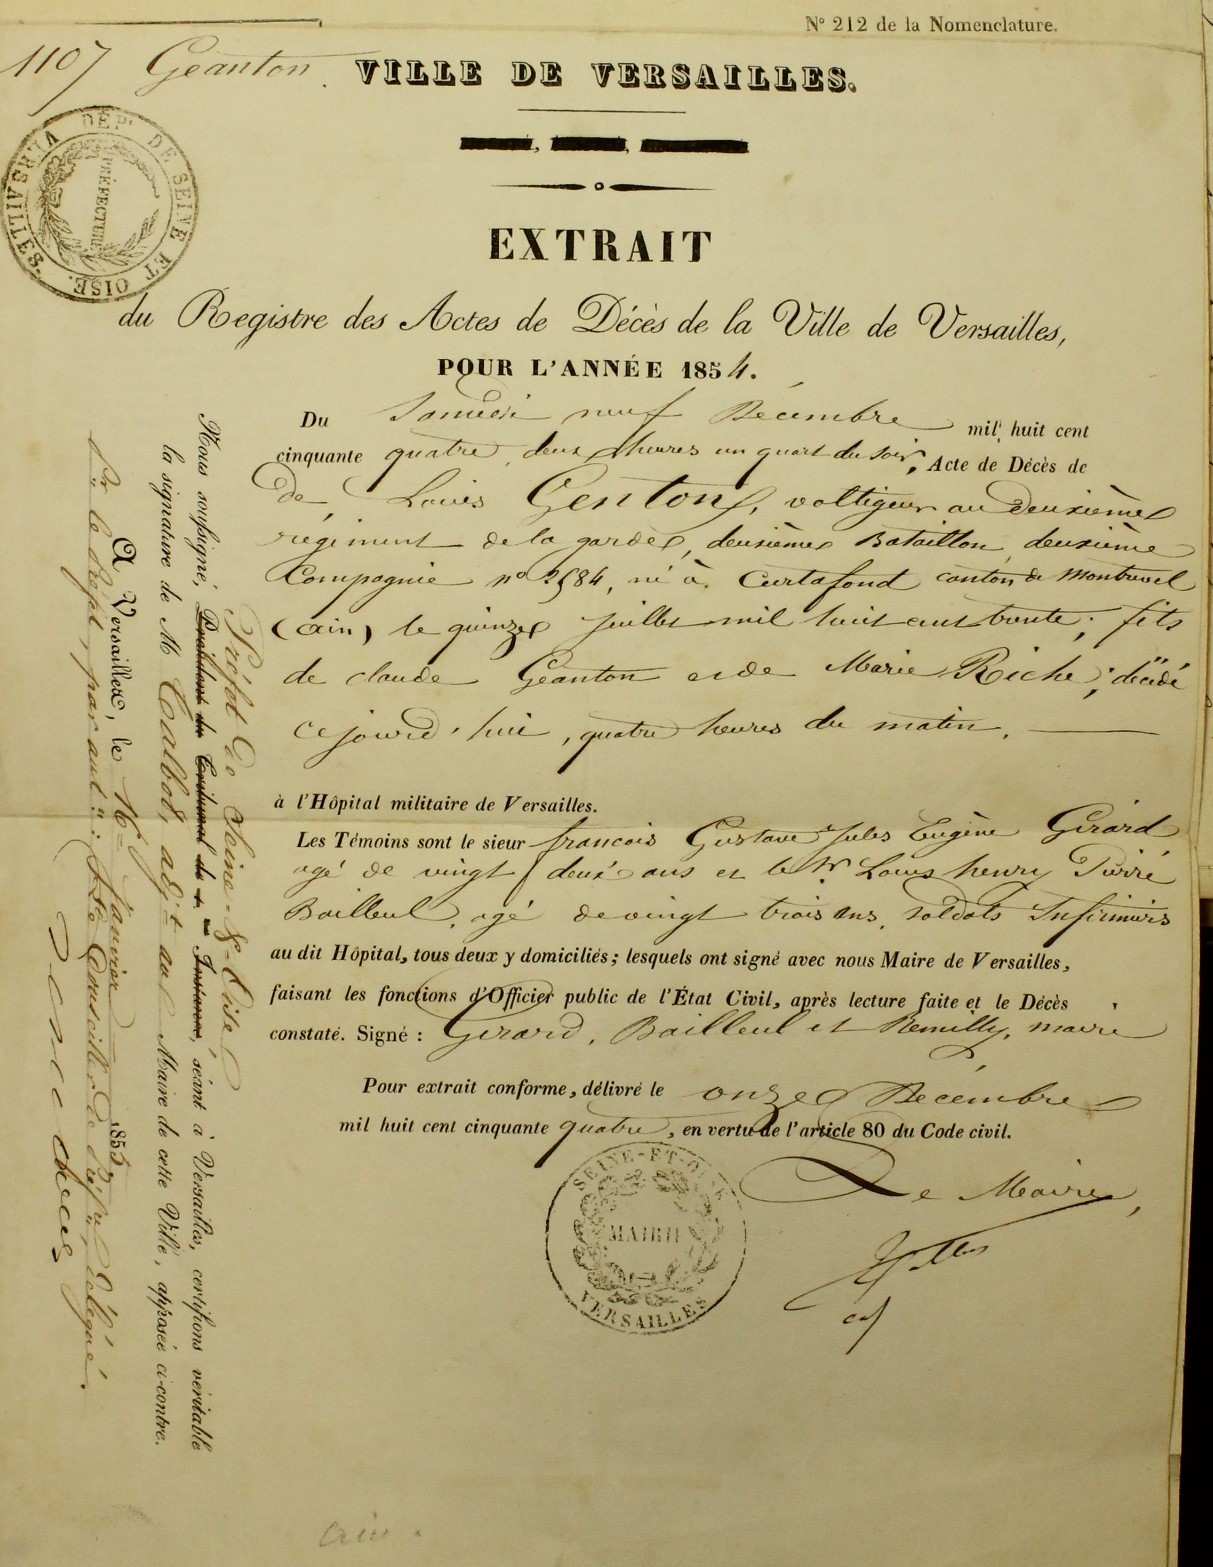 N° 212 de la Nomenclature.
1107 Géanton
VILLE DE VERSAILLES.
DÉPt. DE SEINE ET OISE. VERSAILLES.
PRÉFECTURE
EXTRAIT
du Registre des Actes de Décès de la Ville de Versailles,
POUR L'ANNÉE 1854.
Du Samedi neuf Décembre mil huit cent
cinquante quatre, deux heures un quart du soir, Acte de Décès de
De Louis Genton, voltigeur au deuxième
régiment de la garde, deuxième Bataillon, deuxième
Compagnie n° 2584, né à Curtafond canton de Montrevel
(ain) le quinze juillet mil huit cent trente; fils
de claude Géanton et de Marie Riche; décédé
ce jourd'hui, quatre heures du matin.
à l'Hôpital militaire de Versailles.
Les Témoins sont le sieur francois Gustave Jules Eugène Girard
agé de vingt deux ans et le Sr. Louis henry Pierre
Bailleul, agé de vingt trois ans, soldats Infirmiers
au dit Hôpital, tous deux y domiciliés; lesquels ont signé avec nous Maire de Versailles,
faisant les fonctions d'Officier public de l'État Civil, après lecture faite et le Décès
constaté. Signé: Girard, Bailleul et Remilly, maire
Pour extrait conforme, délivré le onze Décembre
mil huit cent cinquante quatre, en vertu de l'article 80 du Code civil.
Le Maire,
SEINE-ET-OISE
MAIRIE
VERSAILLES
Préfet de Seine-&-Oise
Nous soussigné, Président du Tribunal de 1re Instance, séant à Versailles, certifions véritable
la signature de M adjt au Maire de cette Ville, apposée ci-contre.
A Versailles, le 16 Janvier 1855
Pr. le Préfet, par autn.: Le Conseiller de Préf. délégué.
ain.